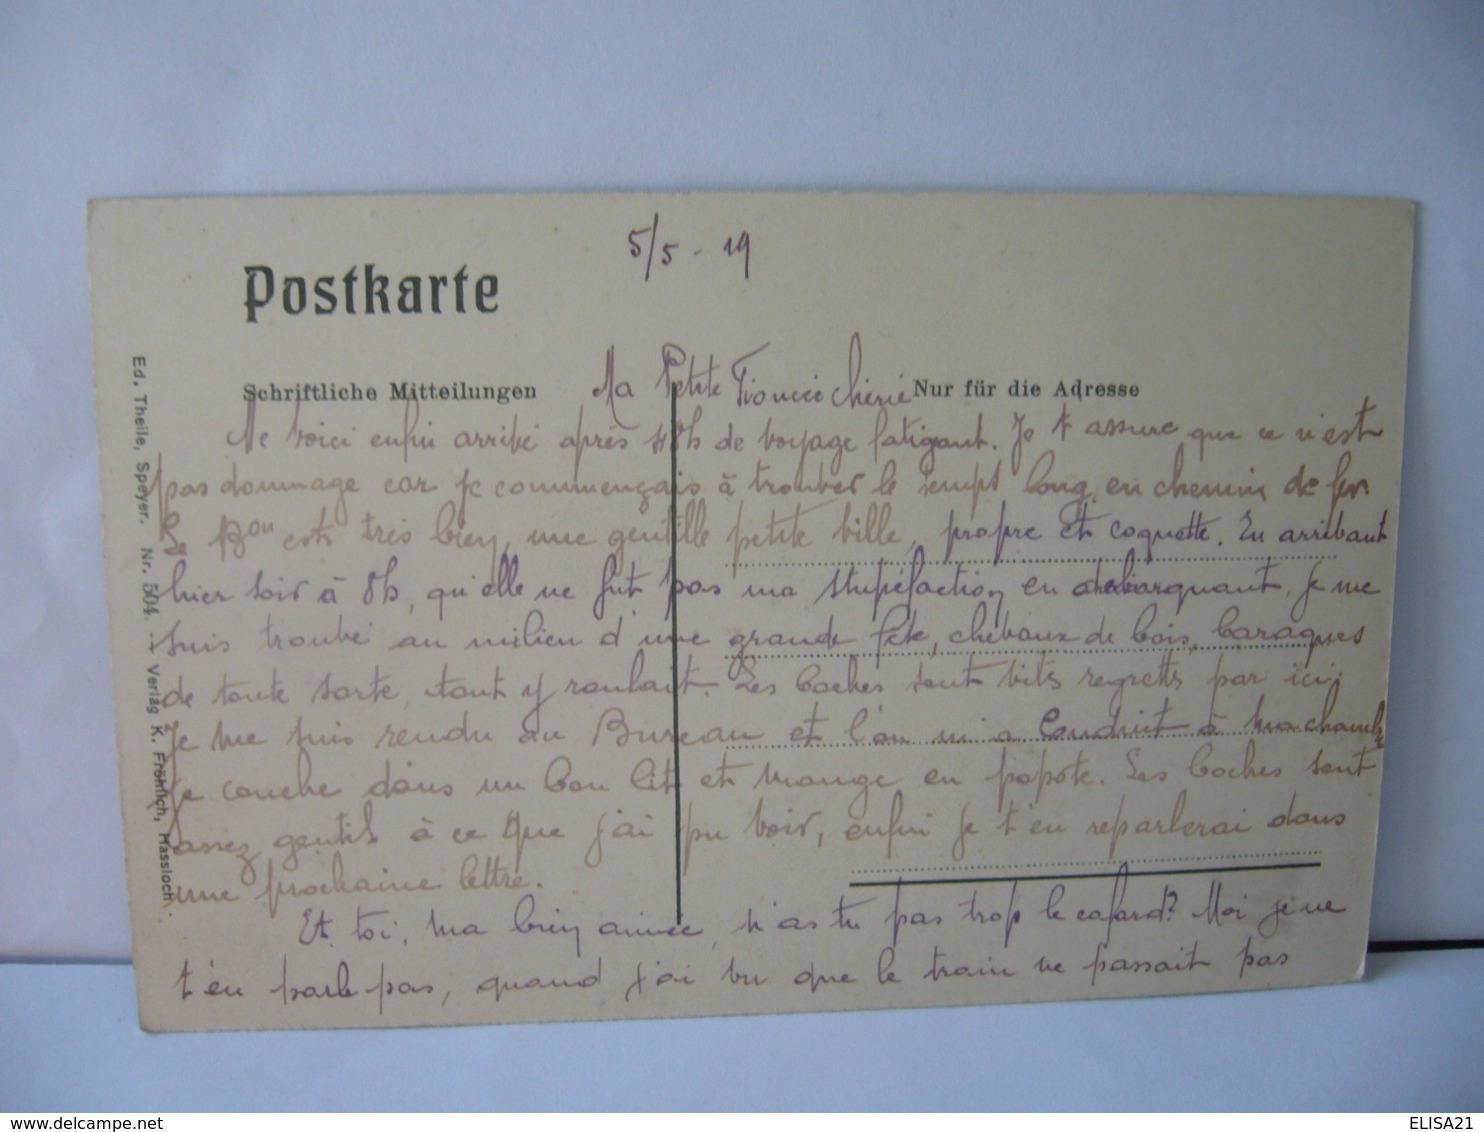 5/5 - 19
Postkarte
Schriftliche Mitteilungen
Ma Petite Fiancée chérie
Nur für die Adresse
Me voici enfin arrivé après 48h de voyage fatigant. Je t'assure que ce n'est
pas dommage car je commençais à trouver le temps long en chemin de fer.
Le Bon est très bien, une gentille petite ville, propre et coquette. En arrivant
hier soir à 8h, qu'elle ne fut pas ma stupéfaction en débarquant, je me
suis trouvé au milieu d'une grande fête, chevaux de bois, baraques
de toute sorte, tout y roulait. Les boches sont vites regrettés par ici.
Je me suis rendu au Bureau et l'on m'a conduit à ma chambre
Je couche dans un bon lit et mange en popote. Les boches sont
assez gentils à ce que j'ai pu voir, enfin je t'en reparlerai dans
une prochaine lettre.
Et toi, ma bien aimée, n'as tu pas trop le cafard? Moi je ne
t'en parle pas, quand j'ai vu que le train ne passait pas
Ed. Theile, Speyer. Nr. 504. — Verlag K. Fröhlich, Hassloch.
delcampe.net
ELISA21